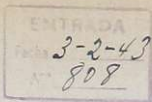 ENTRADA
Fecha 3-2-43
808